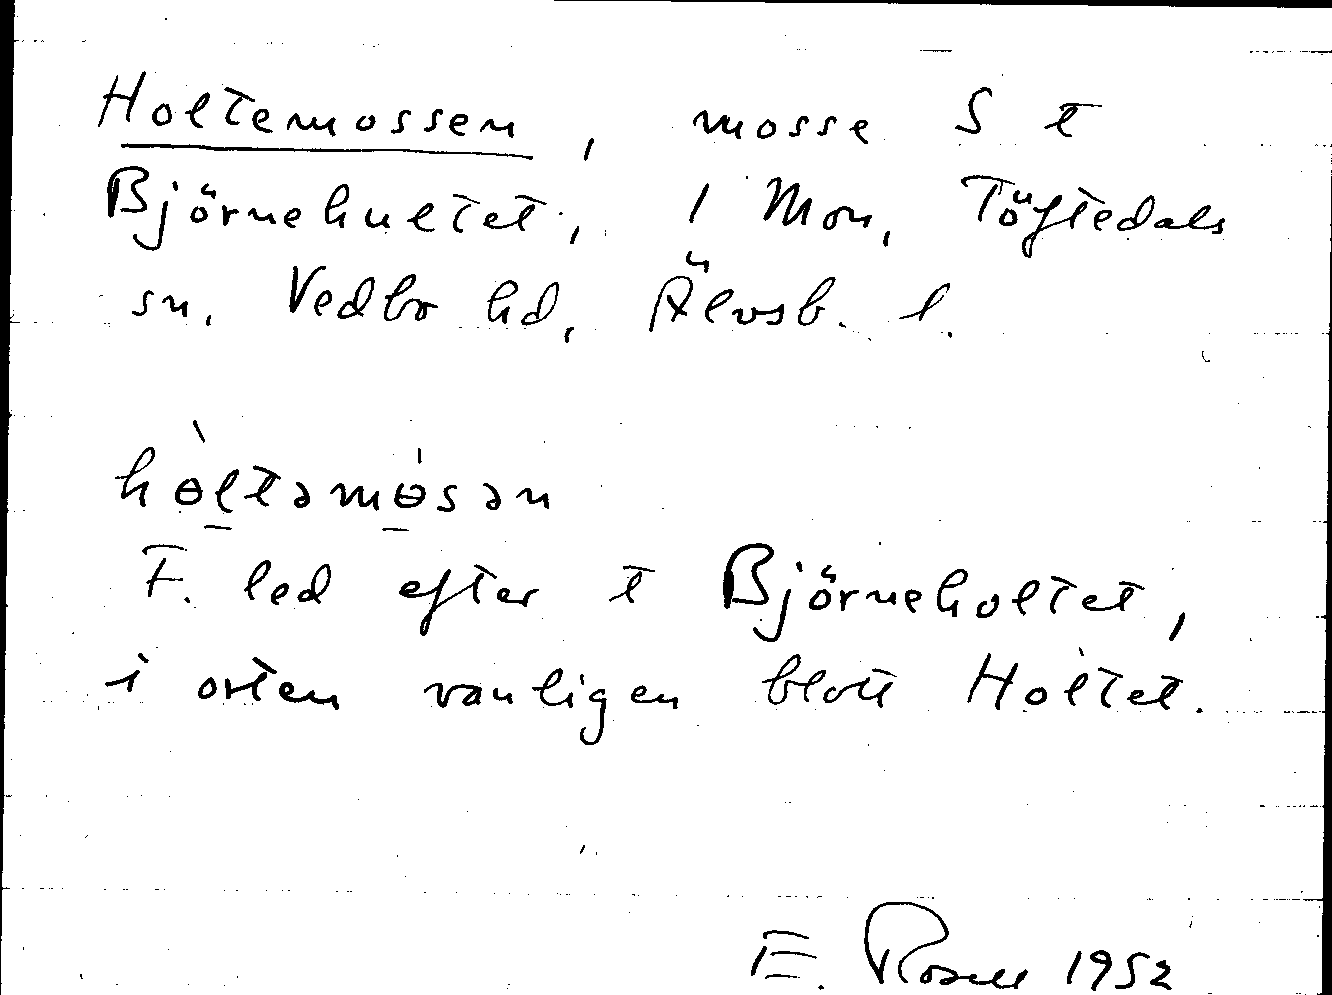 Holtemossen, mosse S t
Björnehultet, 1 Mon, Töftedals
sn, Vedbo hd, Älvsb. l.
hɵ̀ltəmɵ́sən
F. led efter t Björneholtet,
i orten vanligen blott Hòltet.
E. Rosell 1952